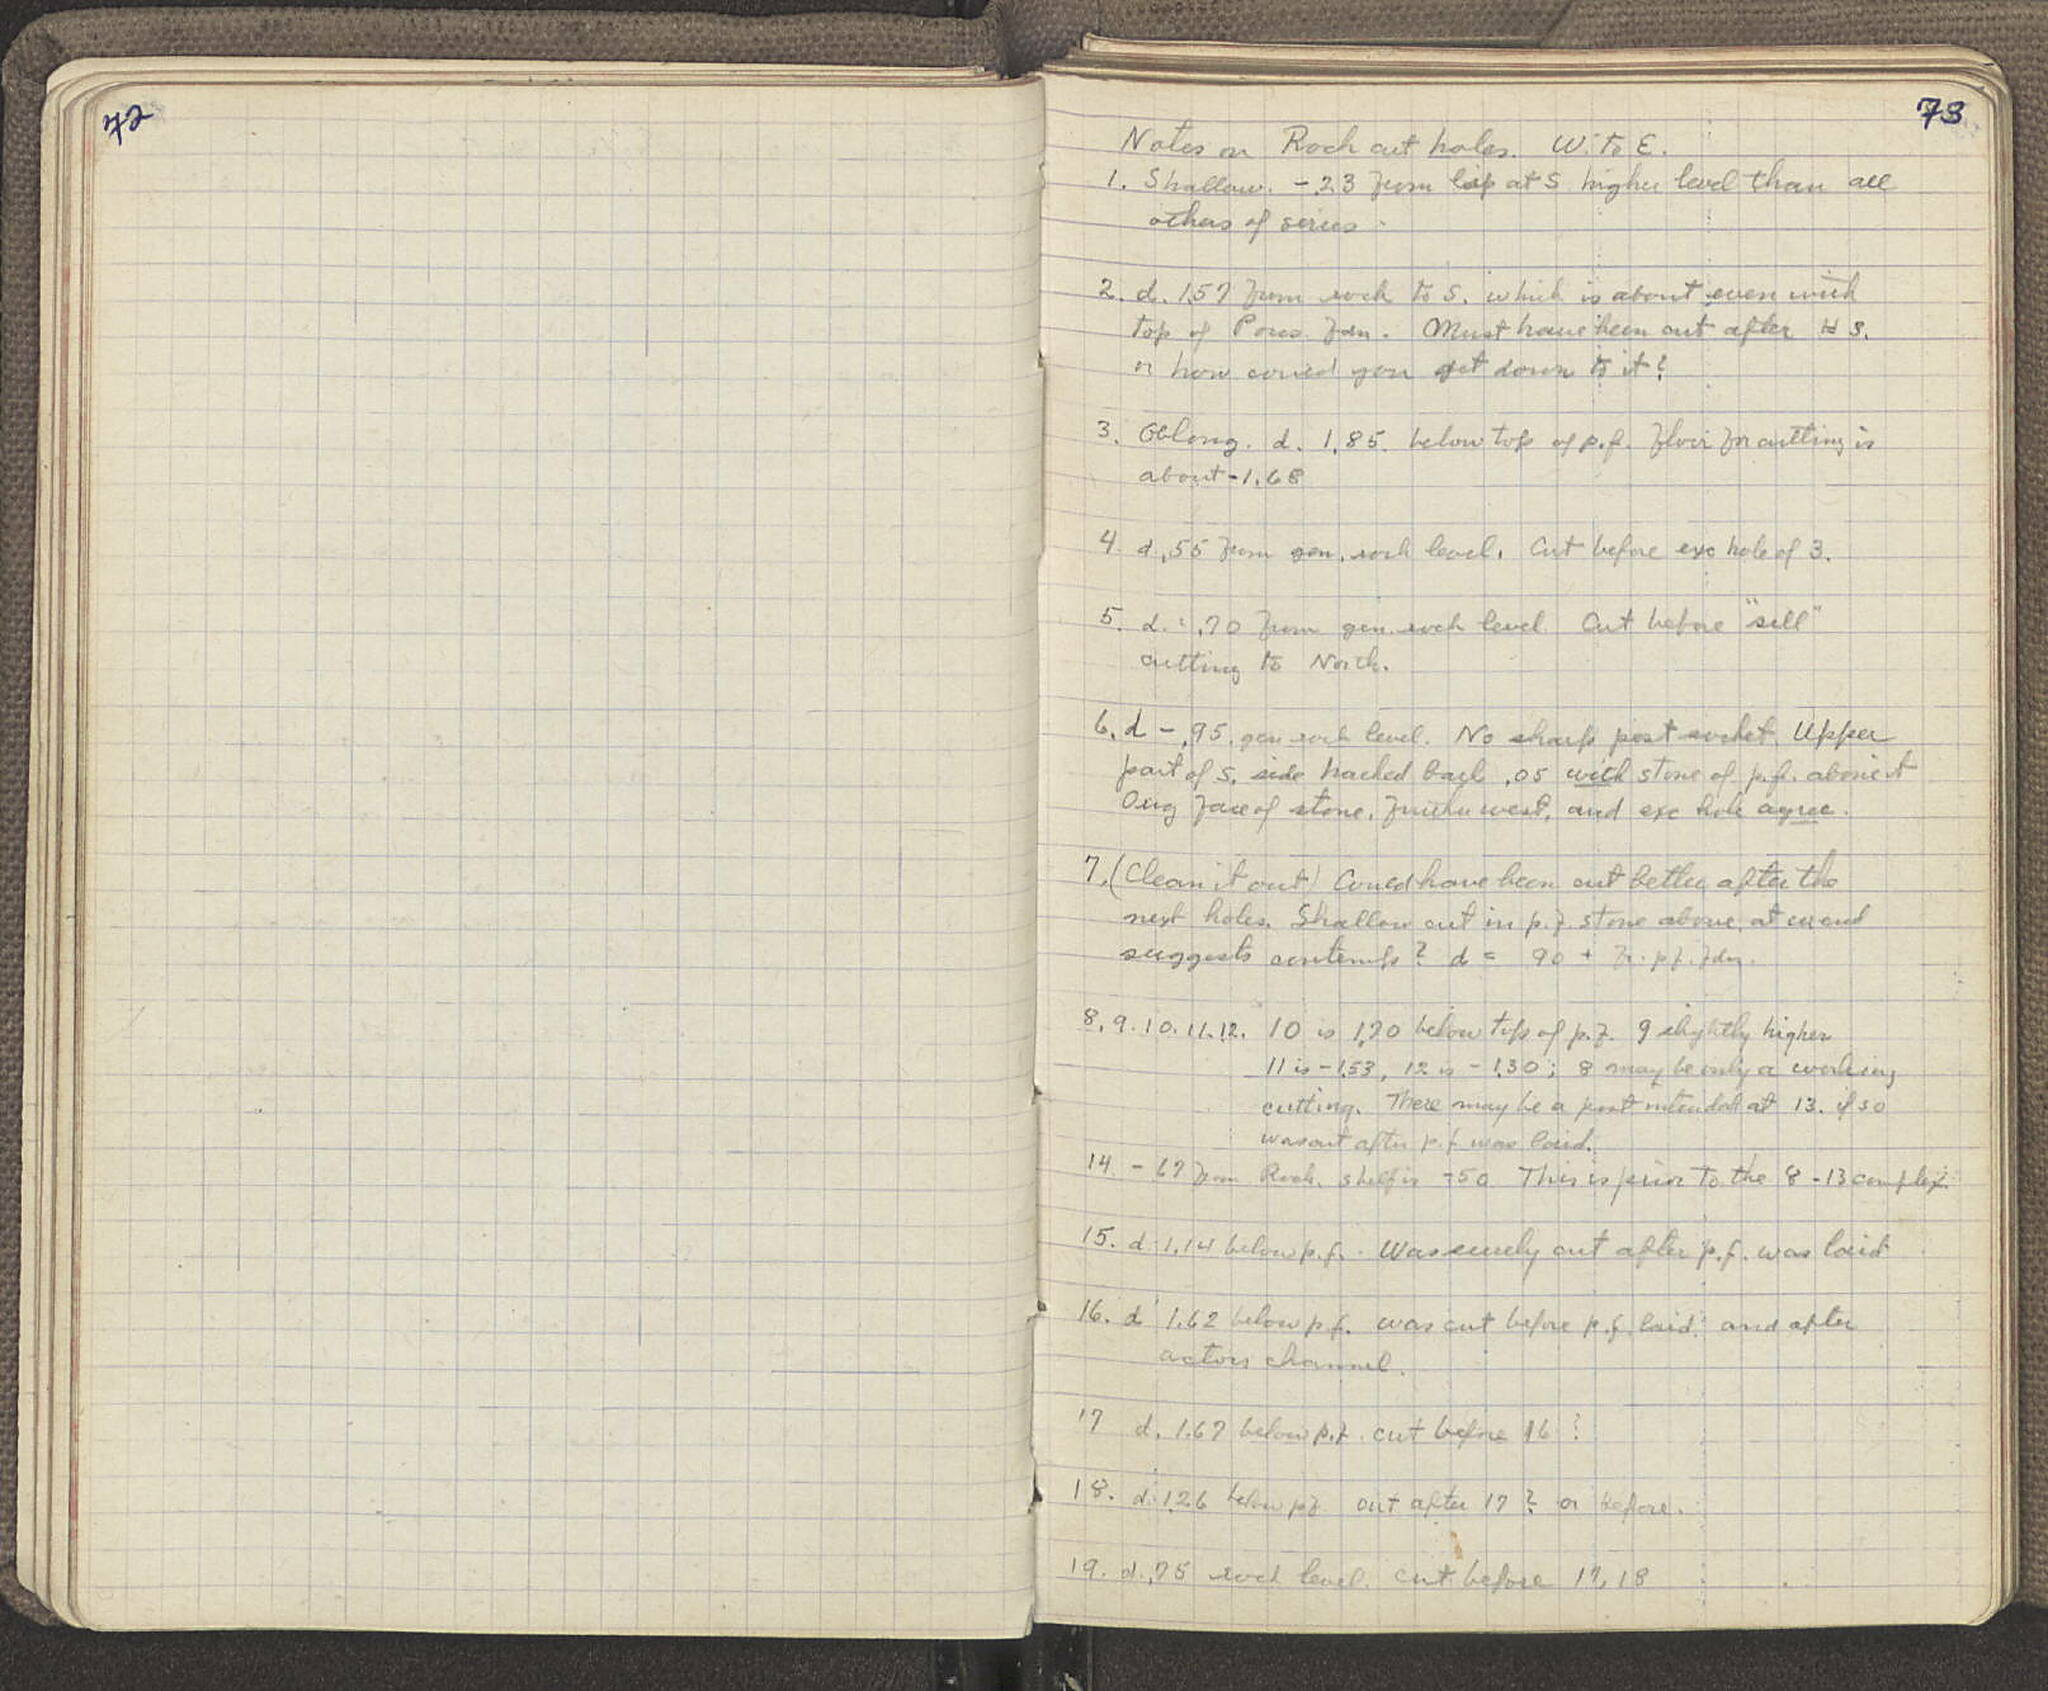 72
73
Notes on Rock cut holes. W. to E.
1. Shallow. -.23 from lip at S. higher level than all
others of series.
2. d. 1.57 from rock to S. which is about even with
top of Poros fdn. Must have been cut after # 3.
or how could you get down to it?
3. Oblong. d. 1.85. below top of p.f. floor for cutting is
about -1.68
4. d .55 from gen. rock level. Cut before exc hole of 3.
5. d. .70 from gen. rock level. Cut before "sill"
cutting to North.
6. d - .95. gen rock level. No sharp post socket. Upper
part of S. side hacked back .05 with stone of p.f. above it
Orig face of stone, further west, and exc hole agree.
7. (Clean it out) Could have been cut better after the
next holes. Shallow cut in p.f. stone above, at end
suggests contemp? d = 90 + fr. p.f. fdn.
8. 9. 10. 11. 12. 10 is 1.20 below top of p.f. 9 slightly higher
11 is -1.53, 12 is -1.30; 8 may be only a working
cutting. There may be a post intended at 13. if so
was cut after p.f was laid.
14 - 67 from Rock. shelf is -50 This is prior to the 8 -13 complex.
15. d. 1.14 below p.f. Was surely cut after p.f. was laid
16. d 1.62 below p.f. was cut before p.f. laid. and after
actors channel.
17 d. 1.67 below p.f. cut before 16 ?
18. d. 1.26 below p.f. cut after 17 ? or before.
19. d. .75 rock level. cut before 17, 18